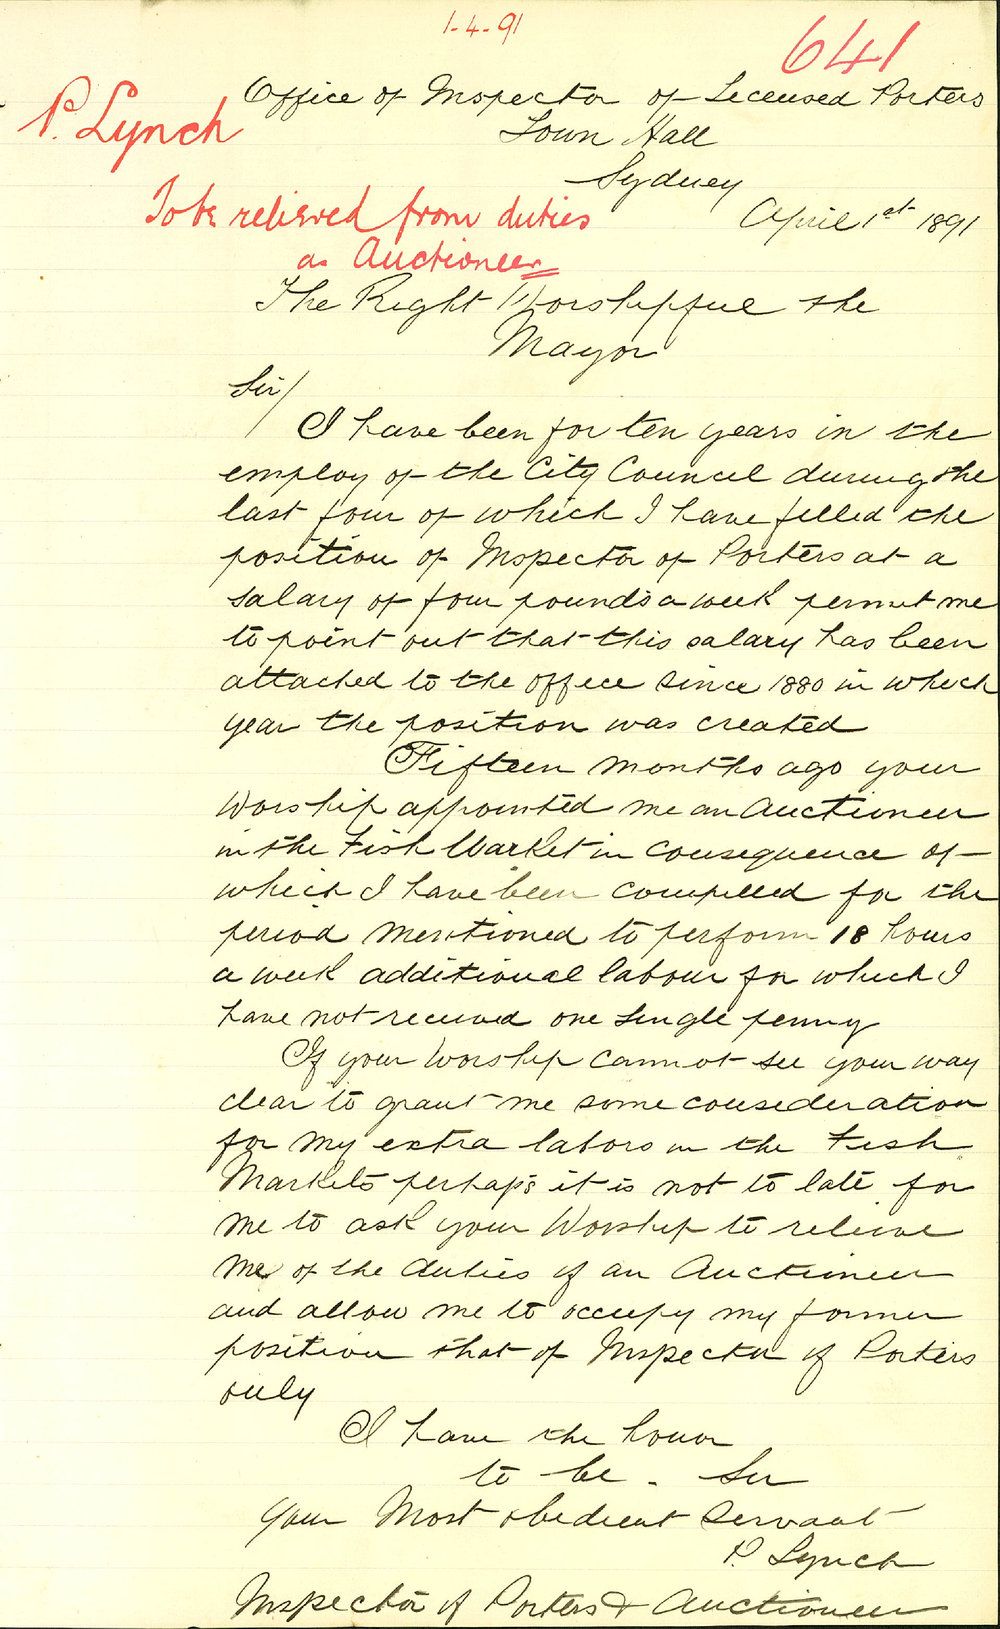 1-4-91
641
P. Lynch
Office of Inspector of Licensed Porters
Town Hall
Sydney
April 1st 1891
To be relieved from duties
as Auctioneer
The Right Worshipful the
Mayor
Sir/
I have been for ten years in the
employ of the City Council during the
last four of which I have filled the
position of Inspector of Porters at a
salary of four pounds a week permit me
to point out that this salary has been
attached to the office since 1880 in which
year the position was created
Fifteen months ago your
Worship appointed me an Auctioneer
in the Fish Market in consequence of
which I have been compelled for the
period mentioned to perform 18 hours
a week additional labour for which I
have not received one single penny
If your Worship cannot see your way
clear to grant me some consideration
for my extra labors in the Fish
Markets perhaps it is not to late for
me to ask your Worship to relieve
me of the duties of an Auctioneer
and allow me to occupy my former
position that of Inspector of Porters
only
I have the honor
to be. Sir
Your Most obedient Servant
P. Lynch
Inspector of Porters & Auctioneer